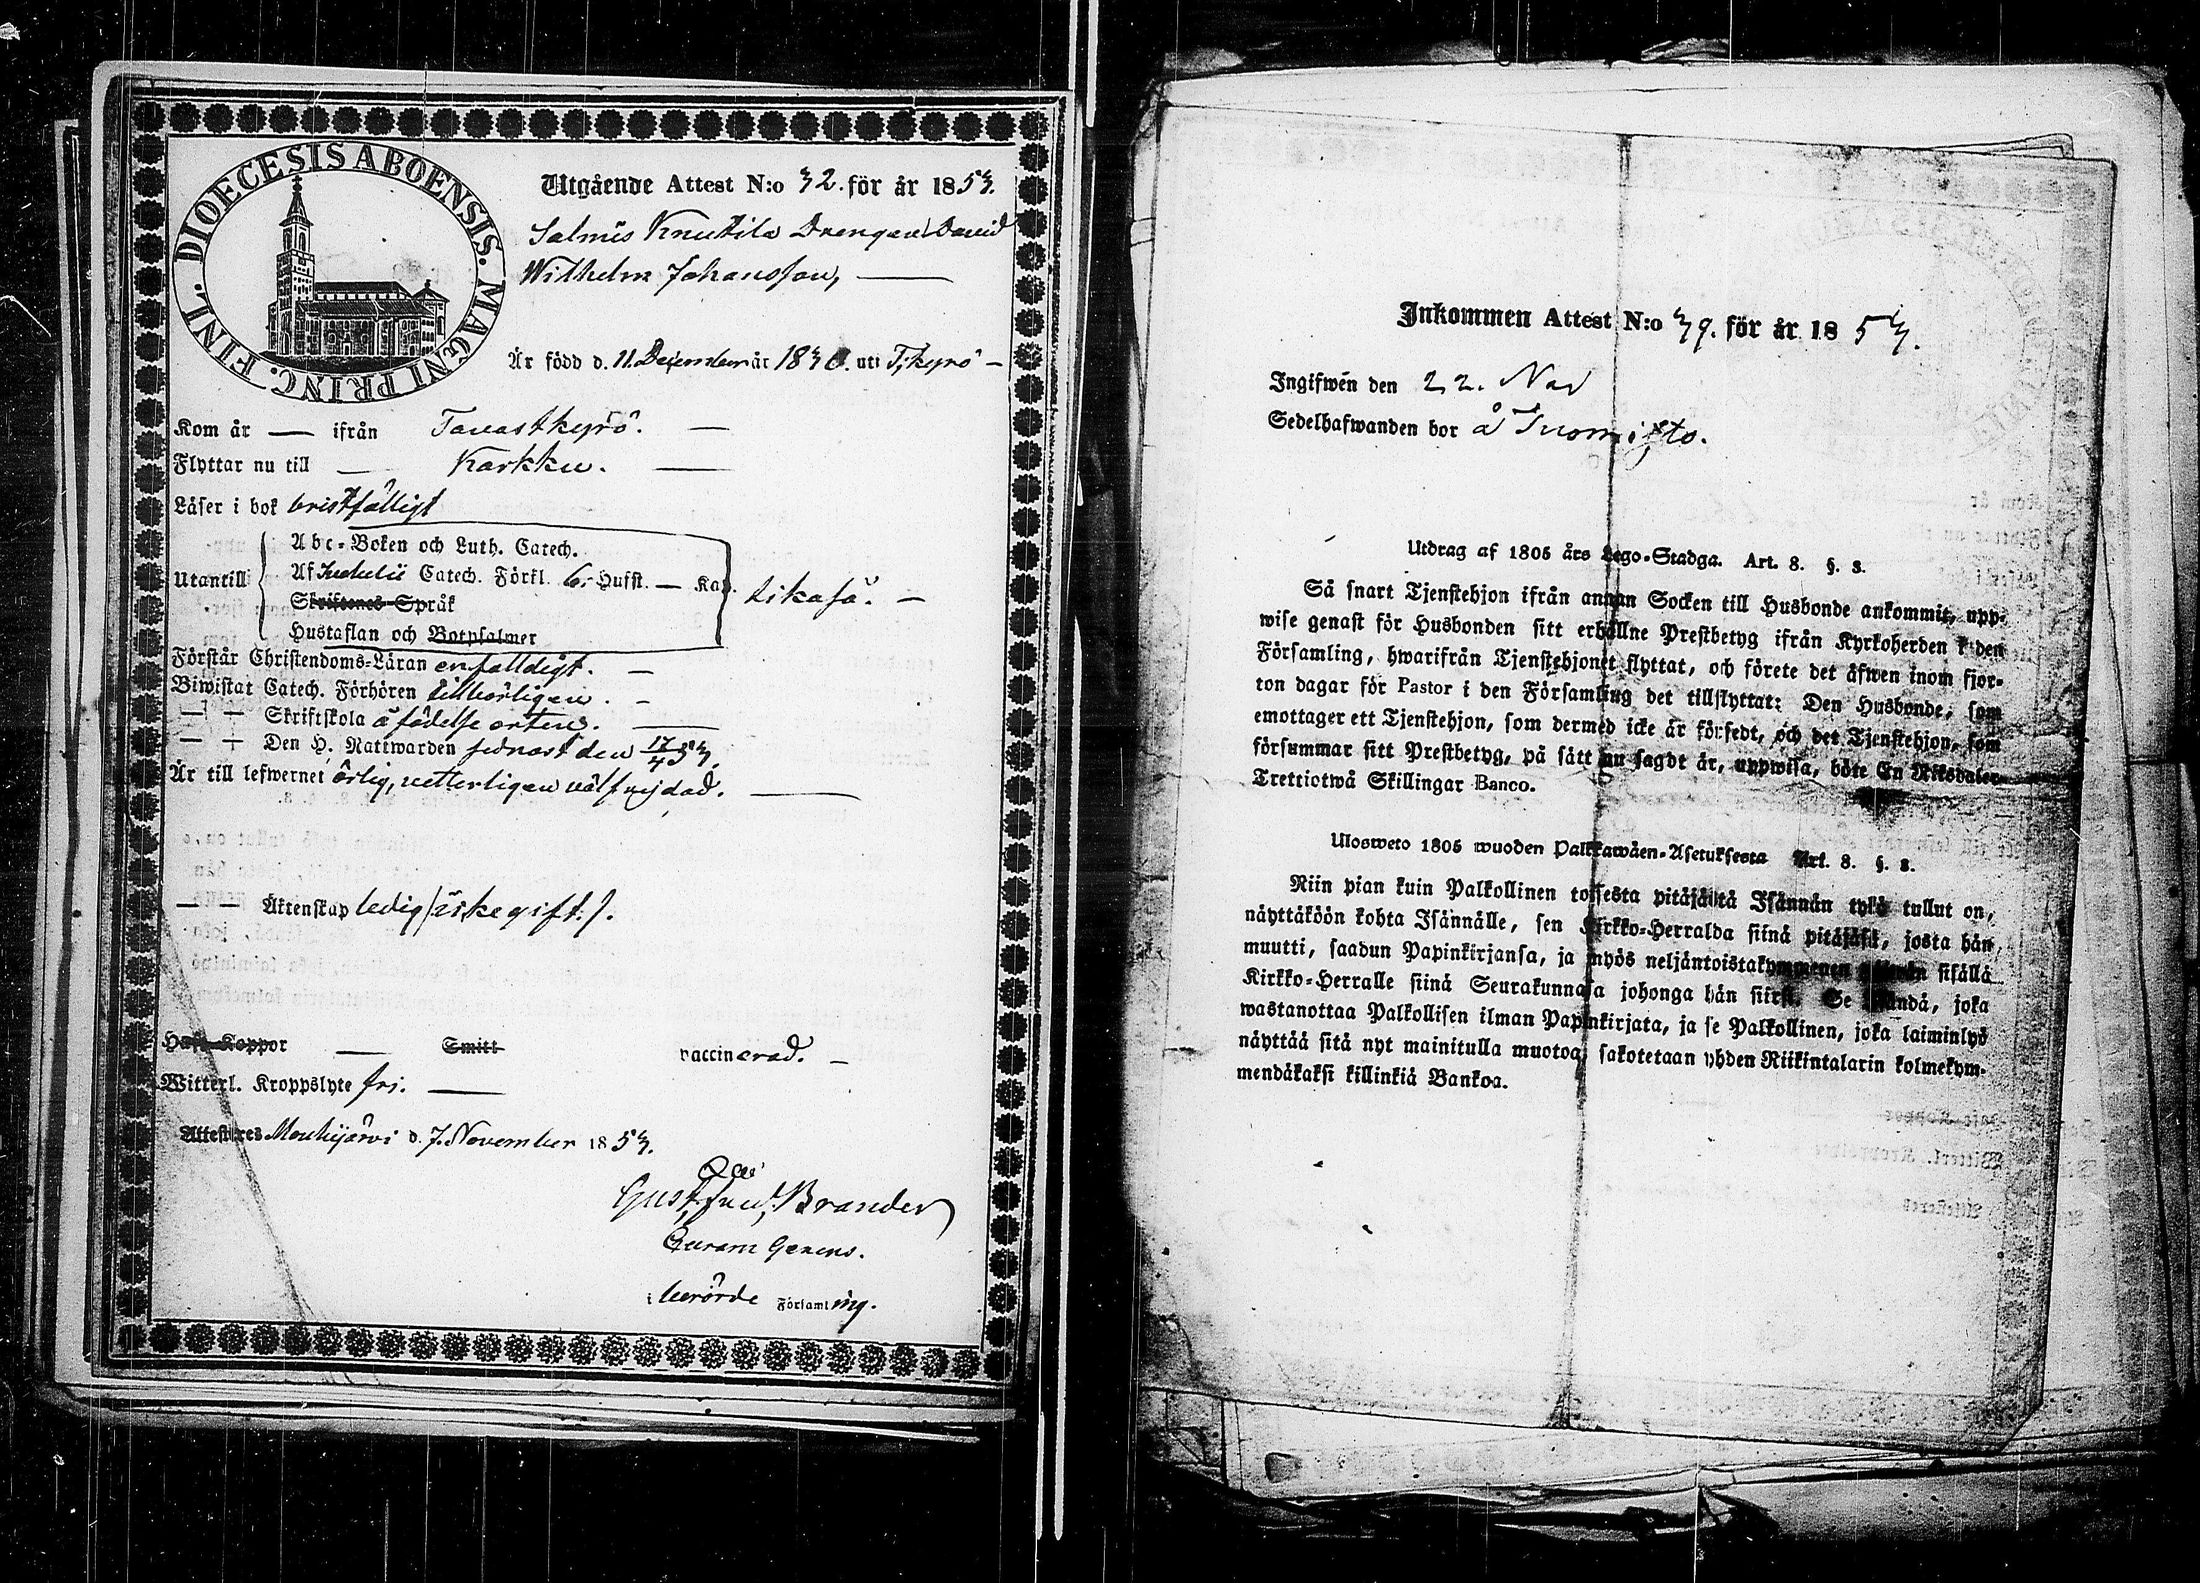 DIOECESIS ABOENSIS. MAGNI PRINC. FINL.
Utgående Attest N:o 32. för år 1853.
Salmis Knuutila Drengen David
Wilhelm Johansson,
Är född d. 11 December år 1830. uti T;kyrö
Kom år — ifrån Tavastkyrö.
Flyttar nu till — Karkku.
Läser i bok bristfälligt
Utantill
Abc-Boken och Luth. Catech.
Af Catech. Förkl. 6. Hufst. — Kap. likaså.
Skriftenes Språk
Hustaflan och Botpsalmer
Förstår Christendoms-Läran enfalldigt.
Biwistat Catech. Förhören tillbörligen.
— — Skriftskola å födelse orten.
— — Den H. Nattwarden sednast den 17/4 53.
Är till lefwernet ärlig, vetterligen välfrejdad.
— — Äktenskap ledig /: icke gift :/.
Haft Koppor — Smitt vaccinerad.
Witterl. Kroppslyte fri.
Attesteres Mouhijärvi d. 7. November 1853.
Gust. Fred. Brander
Curam Gerens.
i berörde Församling.
Inkommen Attest N:o 39. för år 1853.
Ingifwén den 22. Nov
Sedelhafwanden bor å Tuomisto.
Utdrag af 1805 års Lego-Stadga. Art. 8. §. 3.
Så snart Tjenstehjon ifrån annan Socken till Husbonde ankommit, upp-
wise genast för Husbonden sitt erhållne Prestbetyg ifrån Kyrkoherden i den
Församling, hwarifrån Tjenstehjonet flyttat, och förete det äfwen inom fjor-
ton dagar för Pastor i den Församling det tillflyttat: Den Husbonde, som
emottager ett Tjenstehjon, som dermed icke är försedt, och det Tjenstehjon, som
försummar sitt Prestbetyg, på sätt nu sagdt är, uppwisa, böte En Riksdaler
Trettiotwå Skillingar Banco.
Ulosweto 1805 wuoden Palkkawäen-Asetuksesta Art. 8. §. 3.
Niin pian kuin Palkollinen toisesta pitäjästä Isännän tykö tullut on,
näyttäköön kohta Isännälle, sen Kirkko-Herralda siinä pitäjäsä, josta hän
muutti, saadun Papinkirjansa, ja myös neljäntoistakymmenen päiwän sisällä
Kirkko-Herralle siinä Seurakunnasa johonga hän siirsi. Se Isändä, joka
wastanottaa Palkollisen ilman Papinkirjata, ja se Palkollinen, joka laiminlyö
näyttää sitä nyt mainitulla muotoa, sakotetaan yhden Riikintalarin kolmekym-
mendäkaksi killinkiä Bankoa.